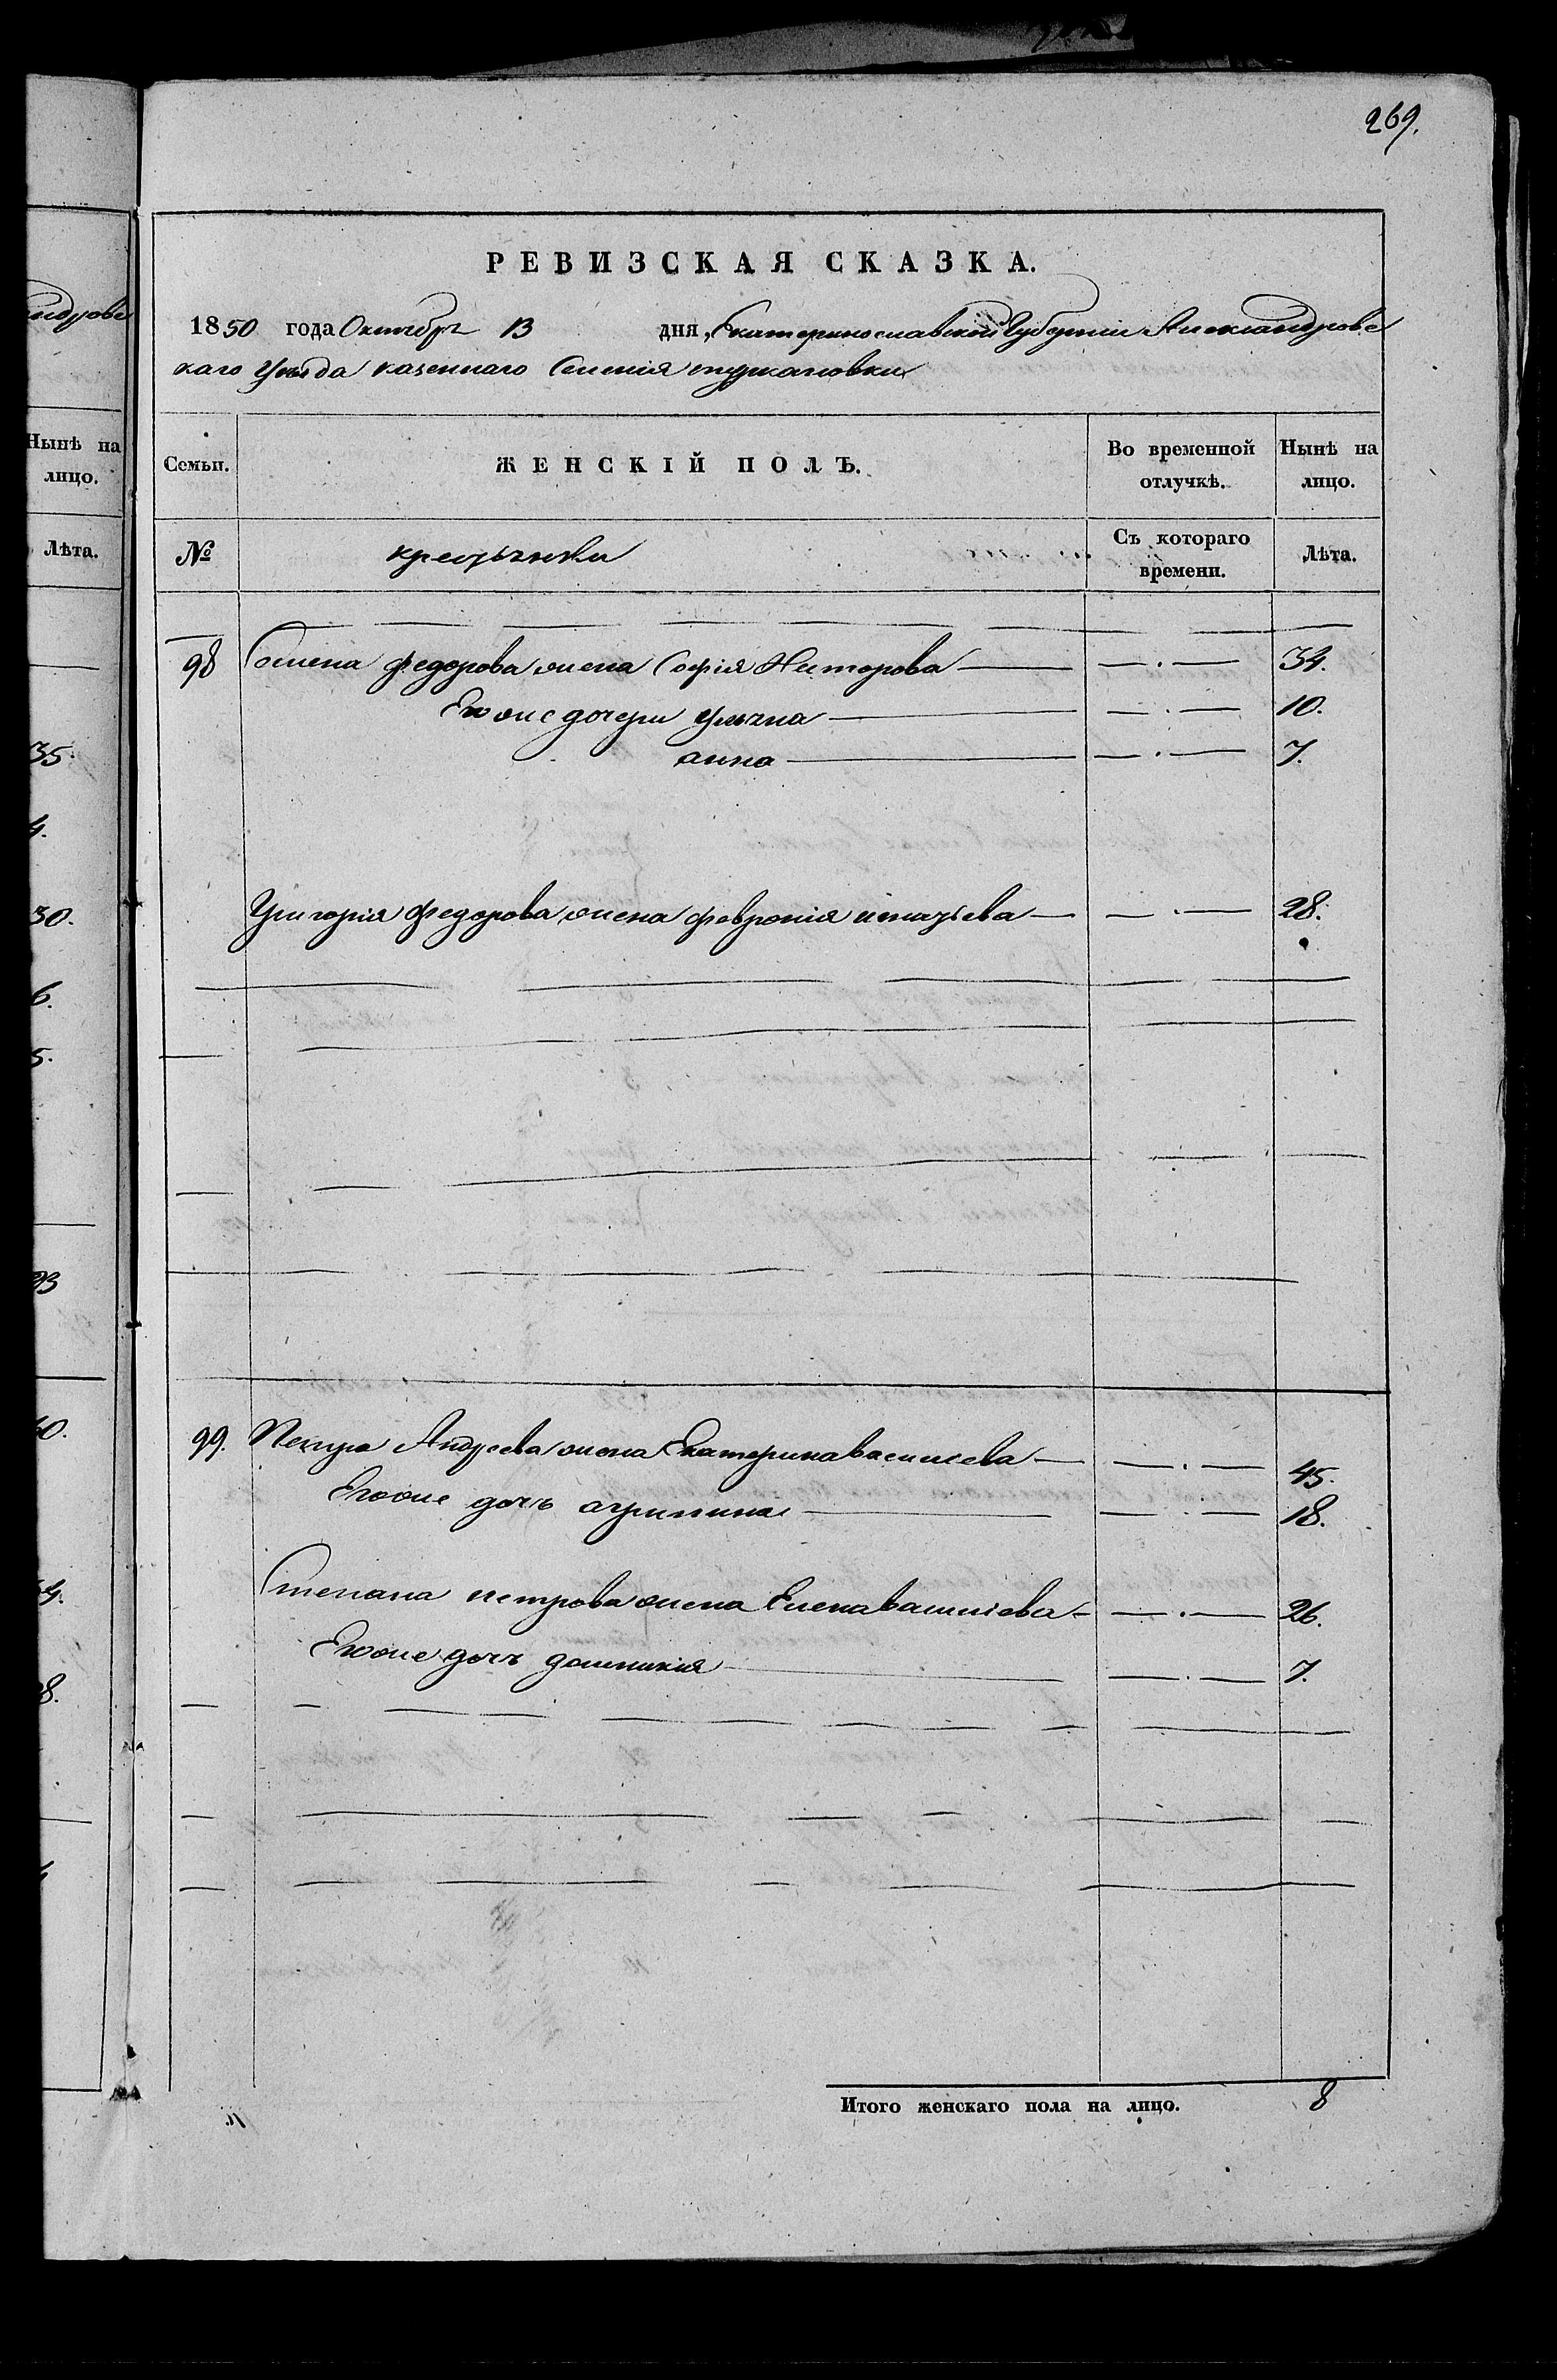 269.
РЕВИЗСКАЯ СКАЗКА.
1850 года Октября 13 дня, Екатеринославской Губерніи Александровс
каго Уѣзда казеннаго Селенія
Семьи.
ЖЕНСКІЙ ПОЛЪ.
Во временной отлучкѣ.
Нынѣ на лицо.
№
крестьянки
Съ котораго времени.
Лѣта.
98 Семена федорова жена Софія Несторова — — . — 34.
Его же дочери Ульяна — — . — 10.
анна — — . — 7.
Григорія федорова жена февронія игнатьева — — . — 28.
99. Петра Андреева жена Екатерина васильева — — . — 45.
Его же дочь агрипина — — . — 18.
Степана петрова жена Елена васильева — — . — 26.
Его же дочь домникія — — . — 7.
Итого женскаго пола на лицо. 8
ндровс
Нынѣ на
лицо.
Лѣта.
35.
4.
30.
6.
5.